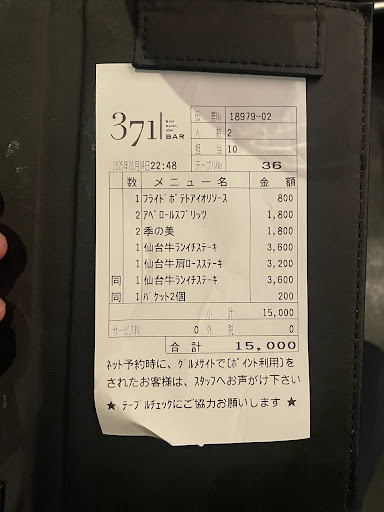 371 BAR
伝票№ 18979-02
人数 2
担当 10
2025年01月04日22:48 テーブル№ 36
数 メニュー名 金額
1 フライドポテトアイオリソース 800
2 アペロールスプリッツ 1,800
2 季の美 1,800
1 仙台牛ランイチステーキ 3,600
1 仙台牛肩ロースステーキ 3,200
同 1 仙台牛ランイチステーキ 3,600
同 1 バケット2個 200
小計 15,000
サービス料 0 外税 0
合計 15,000
ネット予約時に、グルメサイトで〔ポイント利用〕を
されたお客様は、スタッフへお声がけ下さい
★ テーブルチェックにご協力お願いします ★